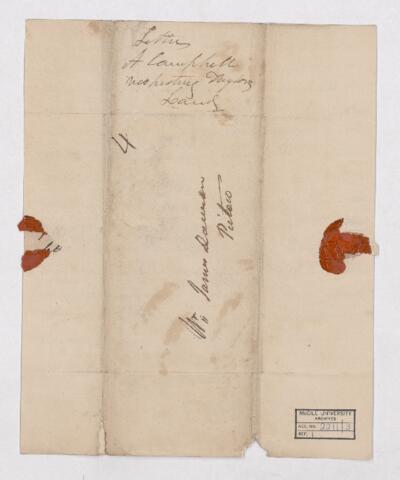 Letter
A Campbell
respecting
Land
4
Mr James Dawson
Pictou
McGILL UNIVERSITY
ARCHIVES
ACC. NO. 2211/3
REF.